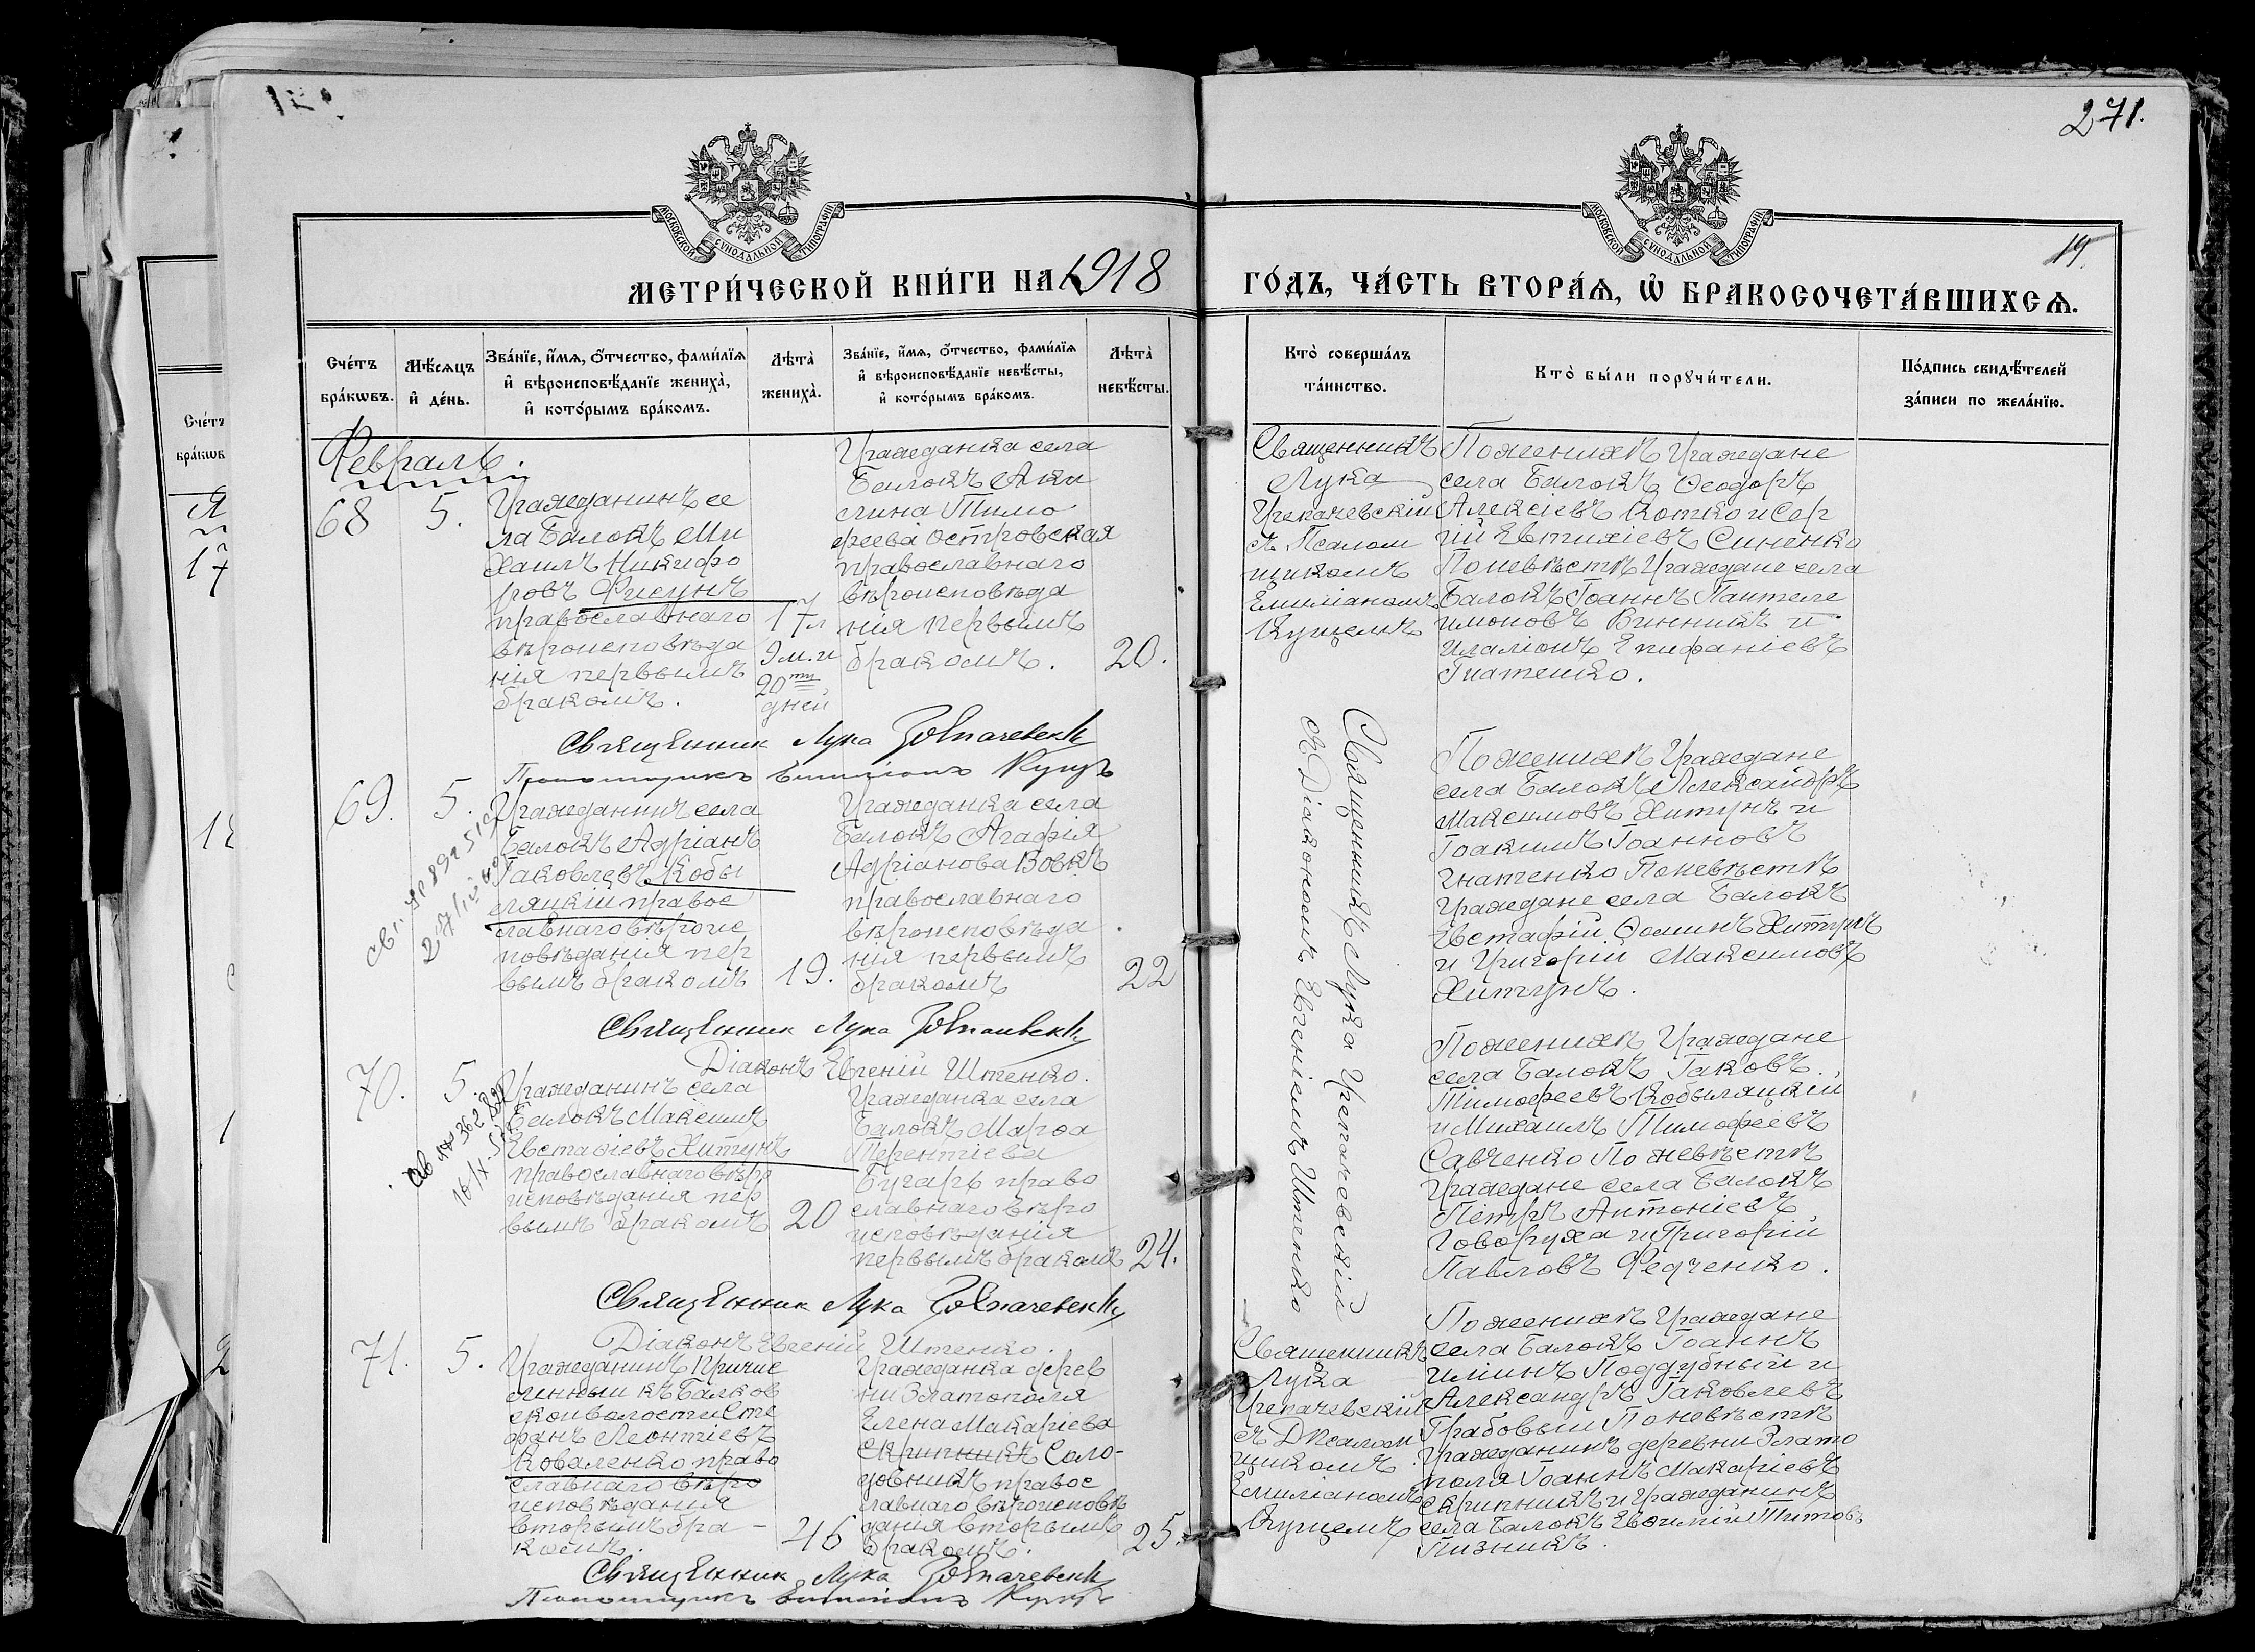 271.
19.
МОСКОВСКОЙ СѴНОДАЛЬНОЙ ТИПОГРАФІИ
МОСКОВСКОЙ СѴНОДАЛЬНОЙ ТИПОГРАФІИ
МЕТРИ́ЧЕСКОЙ КНИ́ГИ НА 1918
ГО́ДЪ, ЧА́СТЬ ВТОРА́Ѧ, Ѡ БРАКОСОЧЕТА́ВШИХСѦ.
Сче́тъ
бра́кѡвъ.
Мѣ́сѧцъ
и҆ де́нь.
Зва́нїе, и҆́мѧ, о҆́тчество, фами́лїѧ
и҆ вѣроисповѣ́данїе жениха̀,
и҆ кото́рымъ бра́комъ.
Лѣта̀
жениха̀.
Зва́нїе, и҆́мѧ, о҆́тчество, фами́лїѧ
и҆ вѣроисповѣ́данїе невѣ́сты,
и҆ кото́рымъ бра́комъ.
Лѣта̀
невѣ́сты.
Кто̀ соверша́лъ
та́инство.
Кто̀ бы́ли порꙋчи́тели.
По́дпись свидѣ́телей
за́писи по жела́нїю.
Февраль.
68
5.
Гражданинъ се
ла Балокъ Ми
хаилъ Никифо
ровъ Фисунъ
православнаго
вѣроисповѣда
нія первымъ
бракомъ.
17 л
9 м. и
20ти
дней
Гражданка села
Балокъ Аки
лина Тимо
феева Островская
православнаго
вѣроисповѣда
нія первымъ
бракомъ.
20.
Священникъ
Лука
Грепачевскій
съ Псалом
щикомъ
Емиліаномъ
Куцемъ
По женихѣ Граждане
села Балокъ Ѳеодоръ
Алексіевъ Котко и Сер
гій Евтихіевъ Синенко
По невѣстѣ Граждане села
Балокъ Іоаннъ Пантеле
имоновъ Винникъ и
Иларіонъ Епифаніевъ
Гнатенко.
Священник Лука
Псаломщикъ Емиліанъ Куцъ
69.
5.
Гражданинъ села
Балокъ Адріанъ
Іаковлевъ Кобы
ляцкій правос
лавнаго вѣроис
повѣданія пер
вымъ бракомъ
19.
Гражданка села
Балокъ Агафія
Адріанова Вовкъ
православнаго
вѣроисповѣда
нія первымъ
бракомъ
22
Священникъ Лука Грепачевскій
съ Діакономъ Евгеніемъ Штенко
По женихѣ Граждане
села Балокъ Александръ
Максимовъ Хитунъ и
Іоакимъ Іоанновъ
Гнатенко По невѣстѣ
Граждане села Балокъ
Евстафій Ѳоминъ Хитунъ
и Григорій Максимовъ
Хитунъ.
Священник Лука
Діаконъ Евгеній Штенко.
70.
5.
Гражданинъ села
Балокъ Максимъ
Евстафіевъ Хитунъ
православнаго вѣро
исповѣданія пер
вымъ бракомъ
20
Гражданка села
Балокъ Марѳа
Терентіева
Бугаръ право
славнаго вѣро
исповѣданія
первымъ бракомъ
24.
По женихѣ Граждане
села Балокъ Іаковъ
Тимофеевъ Кобыляцкій
и Михаилъ Тимофеевъ
Савченко По невѣстѣ
Граждане села Балокъ
Петръ Антоніевъ
Говоруха и Григорій
Павловъ Федченко.
Священник Лука
Діаконъ Евгеній Штенко.
71.
5.
Гражданинъ причис
ленный къ Балков
ской волости Сте
фанъ Леонтіевъ
Коваленко право
славнаго вѣро
исповѣданія
вторымъ бра-
комъ.
46
Гражданка дерев
ни Златополя
Елена Макаріева
Скрипникъ Соло-
довникъ правос
лавнаго вѣроисповѣ
данія вторымъ
бракомъ.
25.
Священникъ
Лука
Грепачевскій
съ Псалом
щикомъ
Емиліаномъ
Куцемъ
По женихѣ Граждане
села Балокъ Іоаннъ
Илиинъ Поддубный и
Александръ Іаковлевъ
Грабовый По невѣстѣ
Гражданинъ деревни Злато
поля Іоаннъ Макаріевъ
Скрипникъ и Гражданинъ
села Балокъ Евѳимій Титовъ
Пизникъ.
Священник Лука
Псаломщикъ Емиліанъ Куцъ